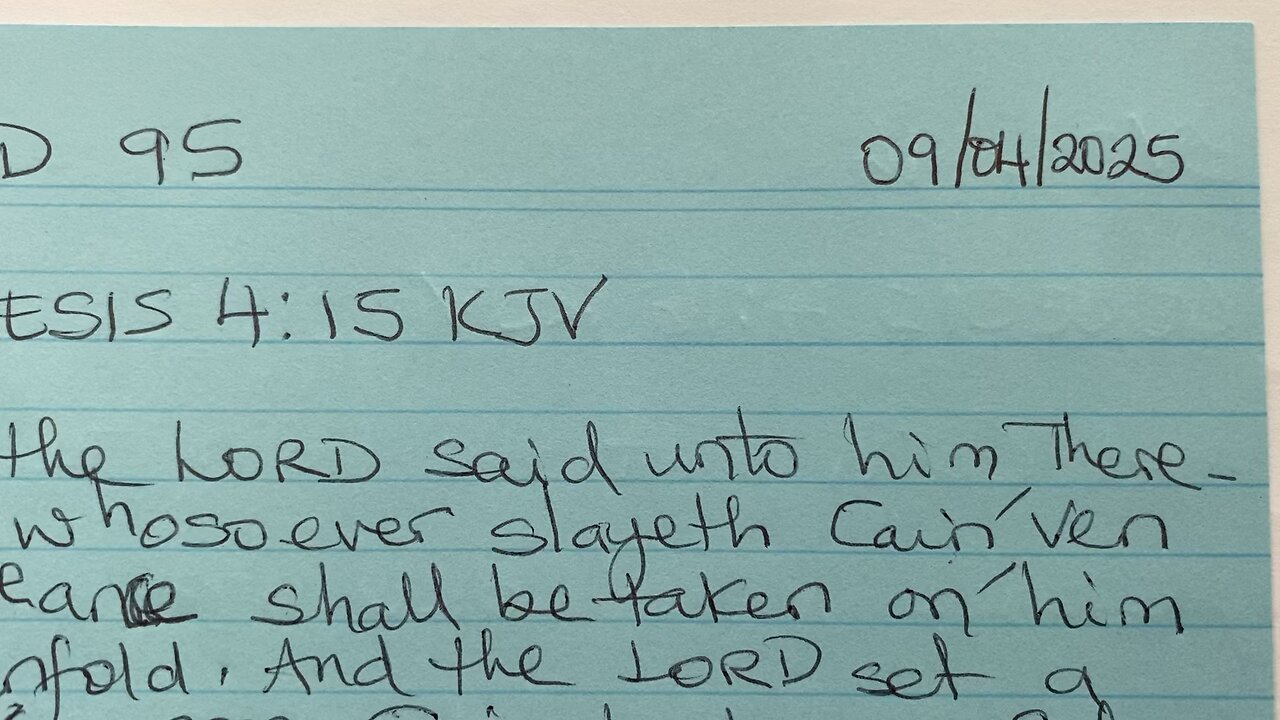 D 95 09/04/2025
ESIS 4:15 KJV
the LORD said unto him There-
whosoever slayeth Cain' ven
eance shall be taken on' him
nfold. And the LORD set a